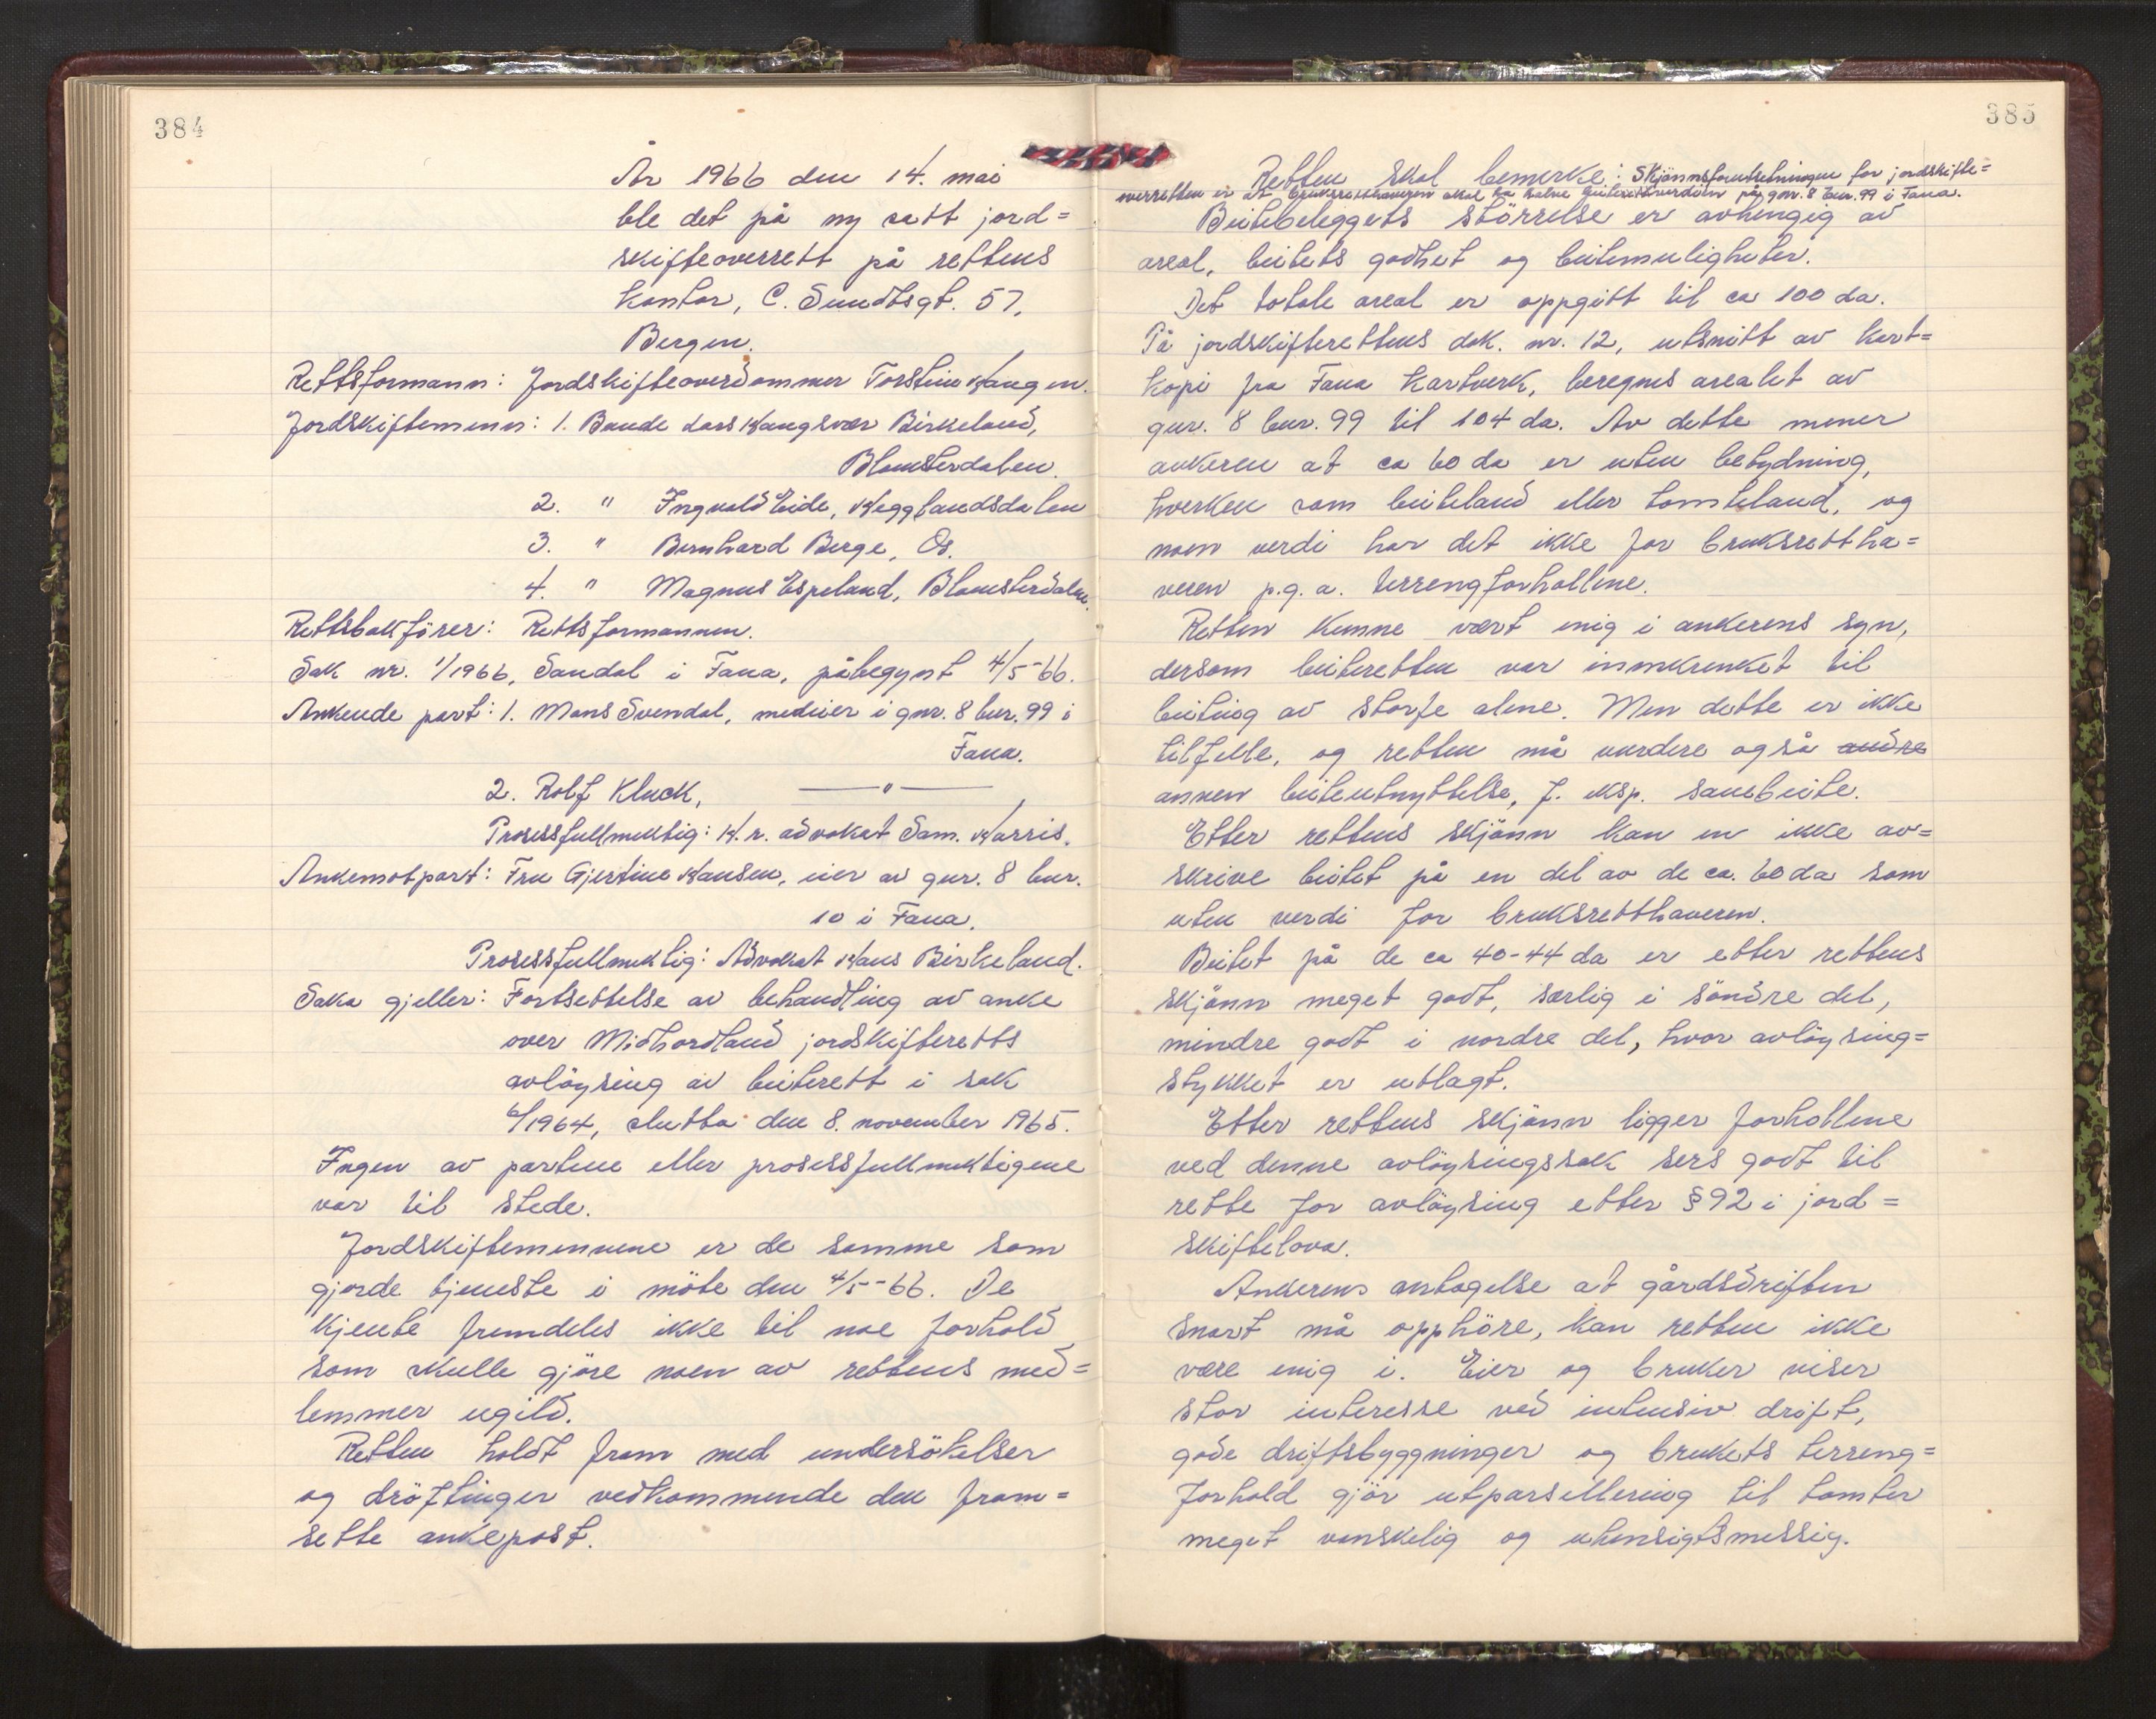 384
År 1966 den 14. mai
ble det på ny satt jord=
skifteoverrett på rettens
kontor, C. Sundtsgt. 57,
Bergen.
Rettsformann: Jordskifteoverdommer Torstein Haugen.
Jordskiftemenn: 1. Bonde Lars Haugsvær Birkeland,
Blomsterdalen.
2. " Ingvald Eide, Hegglandsdalen
3. " Bernhard Berge, Os.
4. " Magnus Espeland, Blomsterdalen.
Rettsbokförer: Rettsformannen.
Sak nr. 1/1966, Sandal i Fana, påbegynt 4/5-66.
Ankende part: 1. Mons Svendal, medeier i gnr. 8 bnr. 99 i
Fana.
2. Rolf Kluck, —"—
Prosessfullmektig: H.r. advokat Sam. Harris.
Ankemotpart: Fru Gjertine Hansen, eier av gnr. 8 bnr.
10 i Fana.
Prosessfullmektig: Advokat Hans Birkeland.
Saka gjeller: Fortsettelse av behandling av anke
over Midhordland jordskifteretts
avlöysing av beiterett i sak
6/1964, slutta den 8. november 1965.
Ingen av partene eller prosessfullmektigene
var til stede.
Jordskiftemennene er de samme som
gjorde tjeneste i möte den 4/5-66. De
kjente fremdeles ikke til noe forhold
som skulle gjöre noen av rettens med=
lemmer ugild.
Retten holdt fram med undersökelser
og dröftinger vedkommende den fram=
sette ankepost.
385
Retten skal bemerke: Skjönnsforutsetningen for jordskifte=
overretten er at bruksrettshaveren skal ha halve beiterettverdien på gnr. 8 bnr. 99 i Fana.
Beitebeleggets störrelse er avhengig av
areal, beitets godhet og beitemuligheter.
Det totale areal er oppgitt til ca 100 da.
På jordskifterettens dok. nr. 12, utsnitt av kart=
kopi fra Fana Kartverk, beregnes arealet av
gnr. 8 bnr. 99 til 104 da. Av dette mener
ankeren at ca 60 da er uten betydning,
hverken som beiteland eller tomteland, og
noen verdi har det ikke for bruksrettha=
veren p.g.a. terrengforholdene.
Retten kunne vært enig i ankerens syn,
dersom beiteretten var innskrenket til
beiting av storfe alene. Men dette er ikke
tilfelle, og retten må vurdere også andre
annen beiteutnyttelse, f. eksp. sauebeite.
Etter rettens skjönn kan en ikke av=
skrive beitet på en del av de ca. 60 da som
uten verdi for bruksretthaveren.
Beitet på de ca 40-44 da er etter rettens
skjönn meget godt, særlig i söndre del,
mindre godt i nordre del, hvor avlöysing=
stykket er utlagt.
Etter rettens skjönn ligger forholdene
ved denne avlöysingssak sers godt til
rette for avlöysing etter § 92 i jord=
skiftelova.
Ankerens antagelse at gårdsdriften
snart må opphöre, kan retten ikke
være enig i. Eier og bruker viser
stor interesse ved intensiv drift,
gode driftsbyggninger og brukets terreng=
forhold gjör utparsellering til tomter
meget vanskelig og uhensigtsmessig.